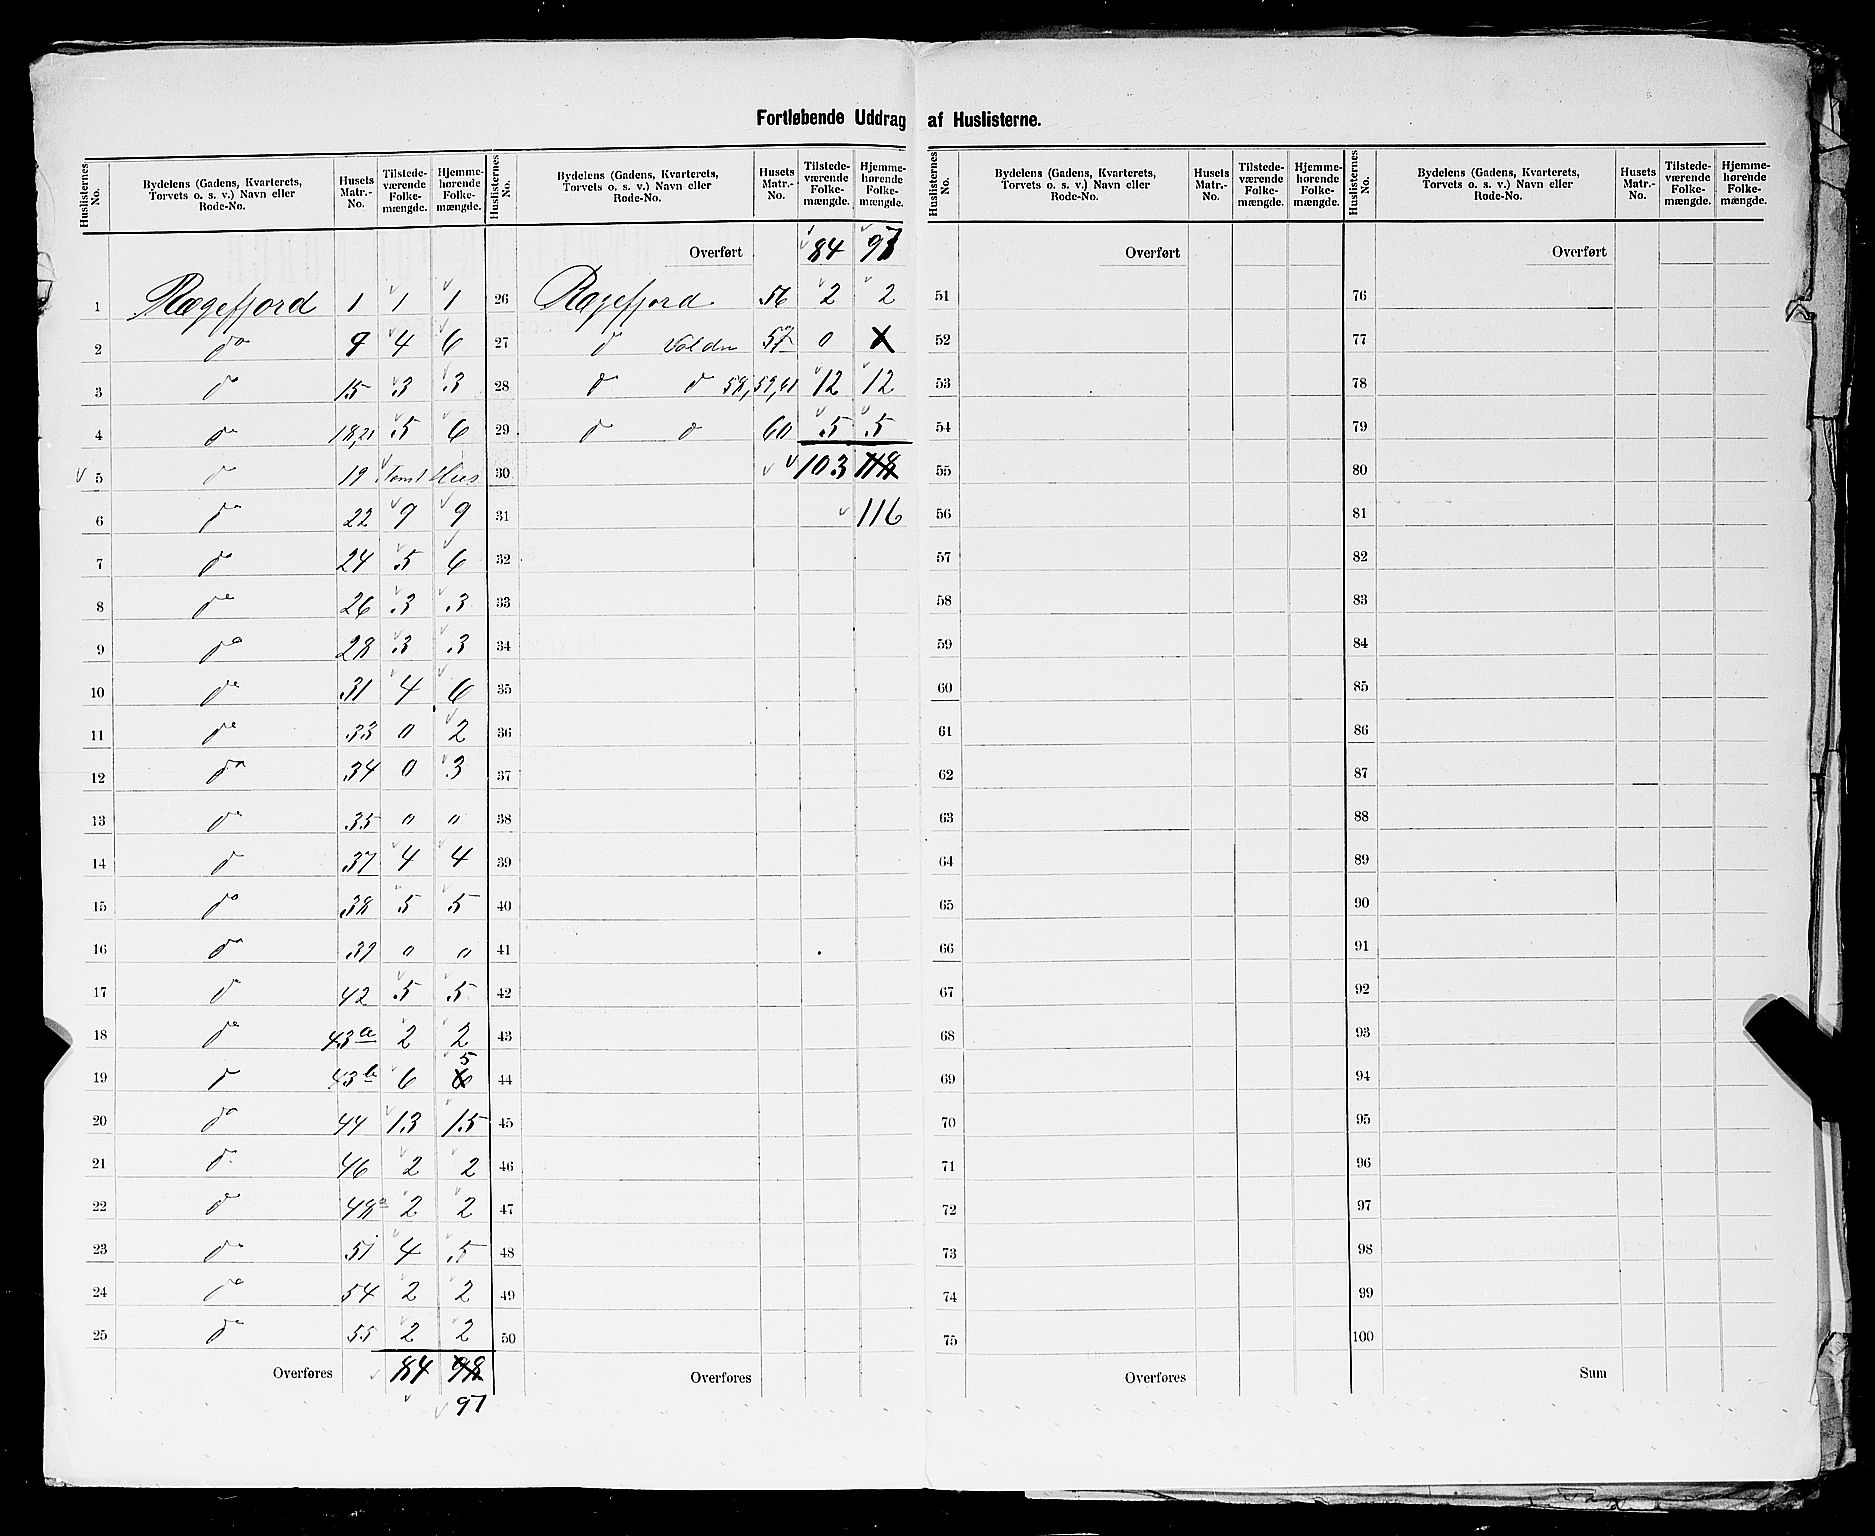 Fortløbende Uddrag af Huslisterne.
Huslisternes No. Bydelens (Gadens, Kvarterets, Torvets o. s. v.) Navn eller Rode-No. Husets Matr.-No. Tilstedeværende Folkemængde. Hjemmehørende Folkemængde.
1 Rægefjord 1 1 1
2 do 9 4 6
3 do 15 3 3
4 do 18,21 5 6
5 d 19 Tomt Hus
6 do 22 9 9
7 do 24 5 6
8 do 26 3 3
9 do 28 3 3
10 do 31 4 6
11 do 33 0 2
12 do 34 0 3
13 do 35 0 0
14 d 37 4 4
15 do 38 5 5
16 do 39 0 0
17 d 42 5 5
18 do 43a 2 2
19 d 43b 6 6 5
20 do 44 13 15
21 d. 46 2 2
22 d 48a 2 2
23 do 51 4 5
24 do 54 2 2
25 do 55 2 2
Overføres 84 98
97
Huslisternes No. Bydelens (Gadens, Kvarterets, Torvets o. s. v.) Navn eller Rode-No. Husets Matr.-No. Tilstedeværende Folkemængde. Hjemmehørende Folkemængde.
Overført 84 97
26 Rægefjord 56 2 2
27 d 57 0
28 d d 58, 59, 61 12 12
29 d d 60 5 5
30 103 118
31 116
32
33
34
35
36
37
38
39
40
41
42
43
44
45
46
47
48
49
50
Overføres
Huslisternes No. Bydelens (Gadens, Kvarterets, Torvets o. s. v.) Navn eller Rode-No. Husets Matr.-No. Tilstedeværende Folkemængde. Hjemmehørende Folkemængde.
Overført
51
52
53
54
55
56
57
58
59
60
61
62
63
64
65
66
67
68
69
70
71
72
73
74
75
Overføres
Huslisternes No. Bydelens (Gadens, Kvarterets, Torvets o. s. v.) Navn eller Rode-No. Husets Matr.-No. Tilstedeværende Folkemængde. Hjemmehørende Folkemængde.
Overført
76
77
78
79
80
81
82
83
84
85
86
87
88
89
90
91
92
93
94
95
96
97
98
99
100
Sum